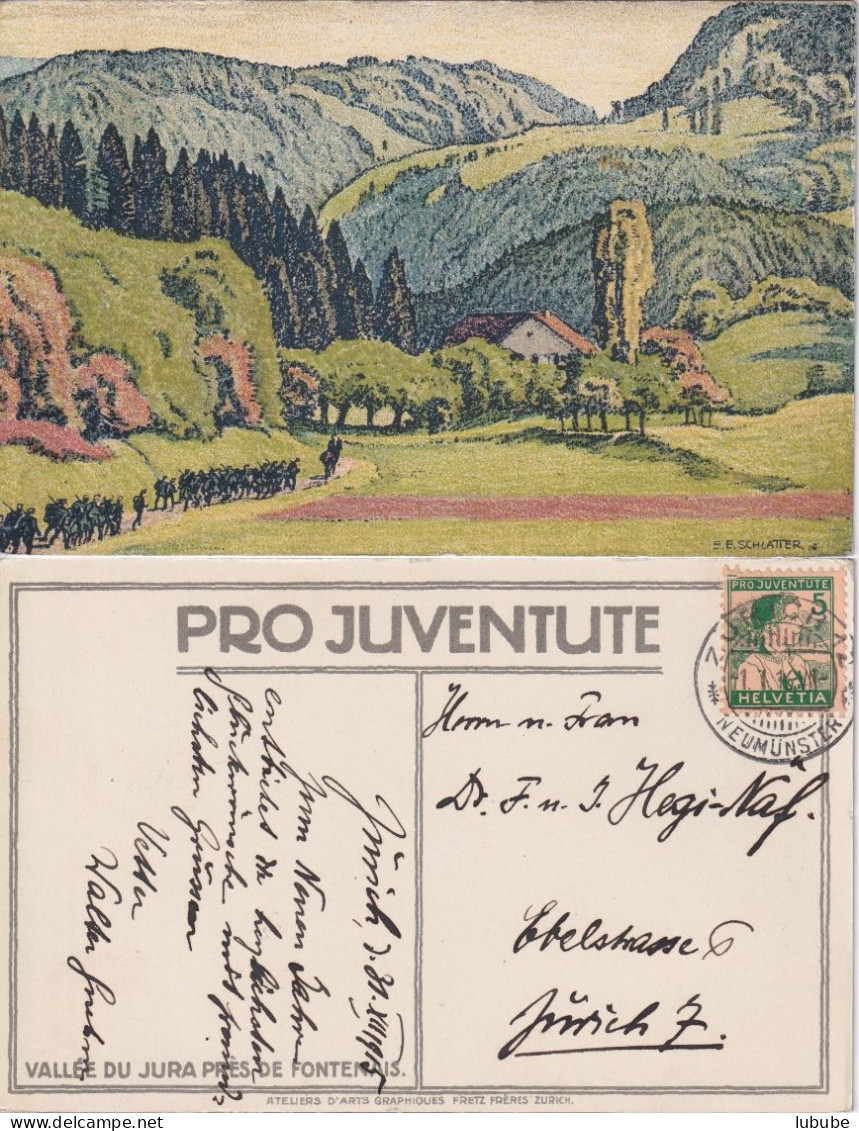 E. E. SCHLATTER
PRO JUVENTUTE
PRO JUVENTUTE 5
HELVETIA
NEUMÜNSTER
Zürich, d. 31. XII 1915
Zum Neuen Jahre
entbietet die herzlichsten
Glückwünsche mit freund-
lichsten Grüssen
Vetter
Walter
Herrn u. Frau
Dr. F. u. J. Hegi-Naf.
Ebelstrasse 6
Zürich 7.
VALLÉE DU JURA PRÈS DE FONTENAIS.
ATELIERS D'ARTS GRAPHIQUES FRETZ FRÈRES ZURICH.
lubube
lubube